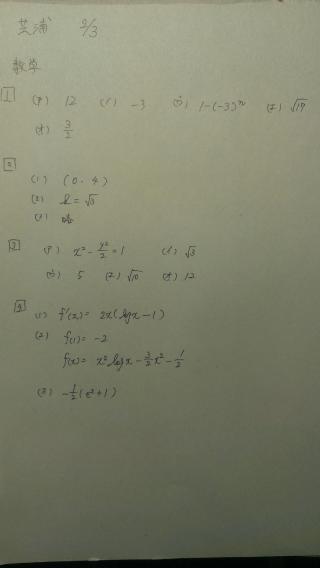 芝浦 2/3
数学
1 (ア) 12 (イ) -3 (ウ) 1-(-3)^n (エ) √19
(オ) 3/2
2
(1) (0, 4)
(2) k = √3
(3)
3 (ア) x² - y²/2 = 1 (イ) √3
(ウ) 5 (エ) √10 (オ) 12
4 (1) f'(x) = 2x(log x - 1)
(2) f(1) = -2
f(x) = x² log x - 3/2 x² - 1/2
(3) -1/2 (e² + 1)